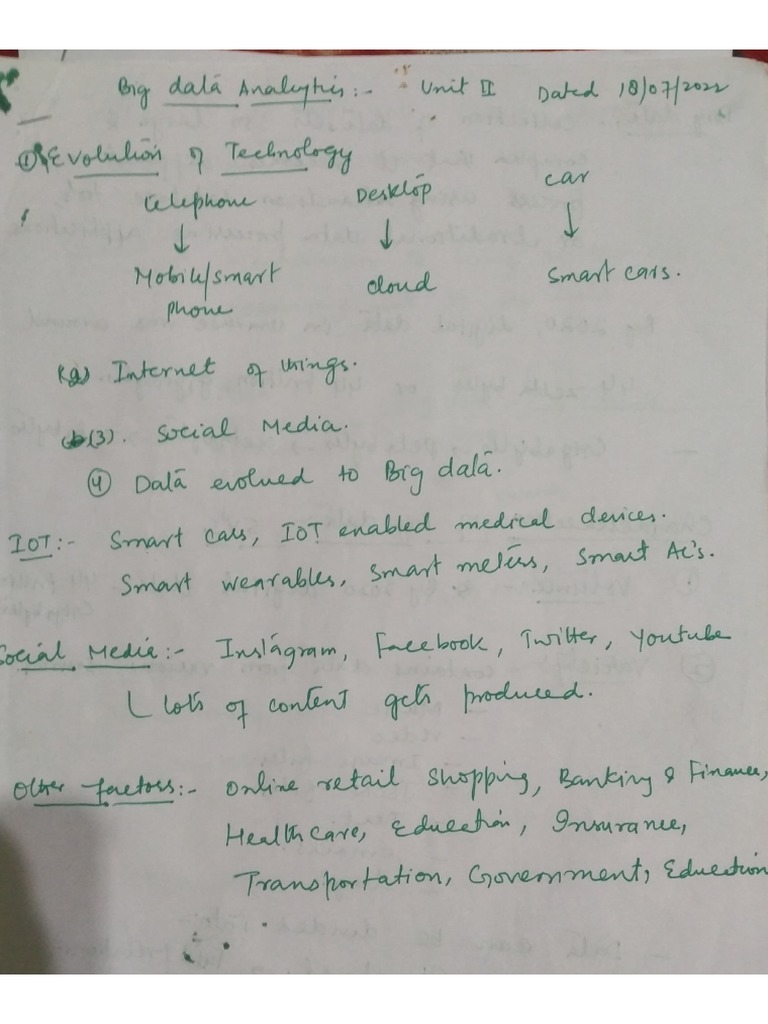 Big data Analytics:- Unit II Dated 18/07/2022
① Evolution of Technology
telephone Desktop car
↓ ↓ ↓
Mobile/smart phone cloud smart cars.
(2) Internet of things.
(3). Social Media.
④ Data evolved to Big data.
IOT:- Smart cars, IOT enabled medical devices.
Smart wearables, smart meters, Smart Ac's.
Social Media:- Instagram, Facebook, Twitter, Youtube
lots of content gets produced.
Other factors:- Online retail shopping, Banking & Finance,
Healthcare, Education, Insurance,
Transportation, Government, Education